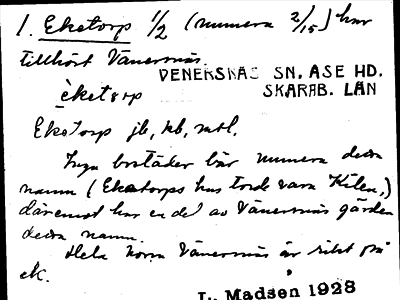 1. Eketorp 1/2 (numera 2/15) har
tillhört Vänersnäs.
VENERSNÄS SN. ÅSE HD.
SKARAB. LÄN
èketorp
Eketorp jb, kb, mtl,
Inga bostäder bär numera detta
namn (Eketorps hus torde vara Kilen,)
däremot har en del av Vänersnäs gården
detta namn.
Hela norra Vänersnäs är rikt på
ek.
L. Madsen 1928